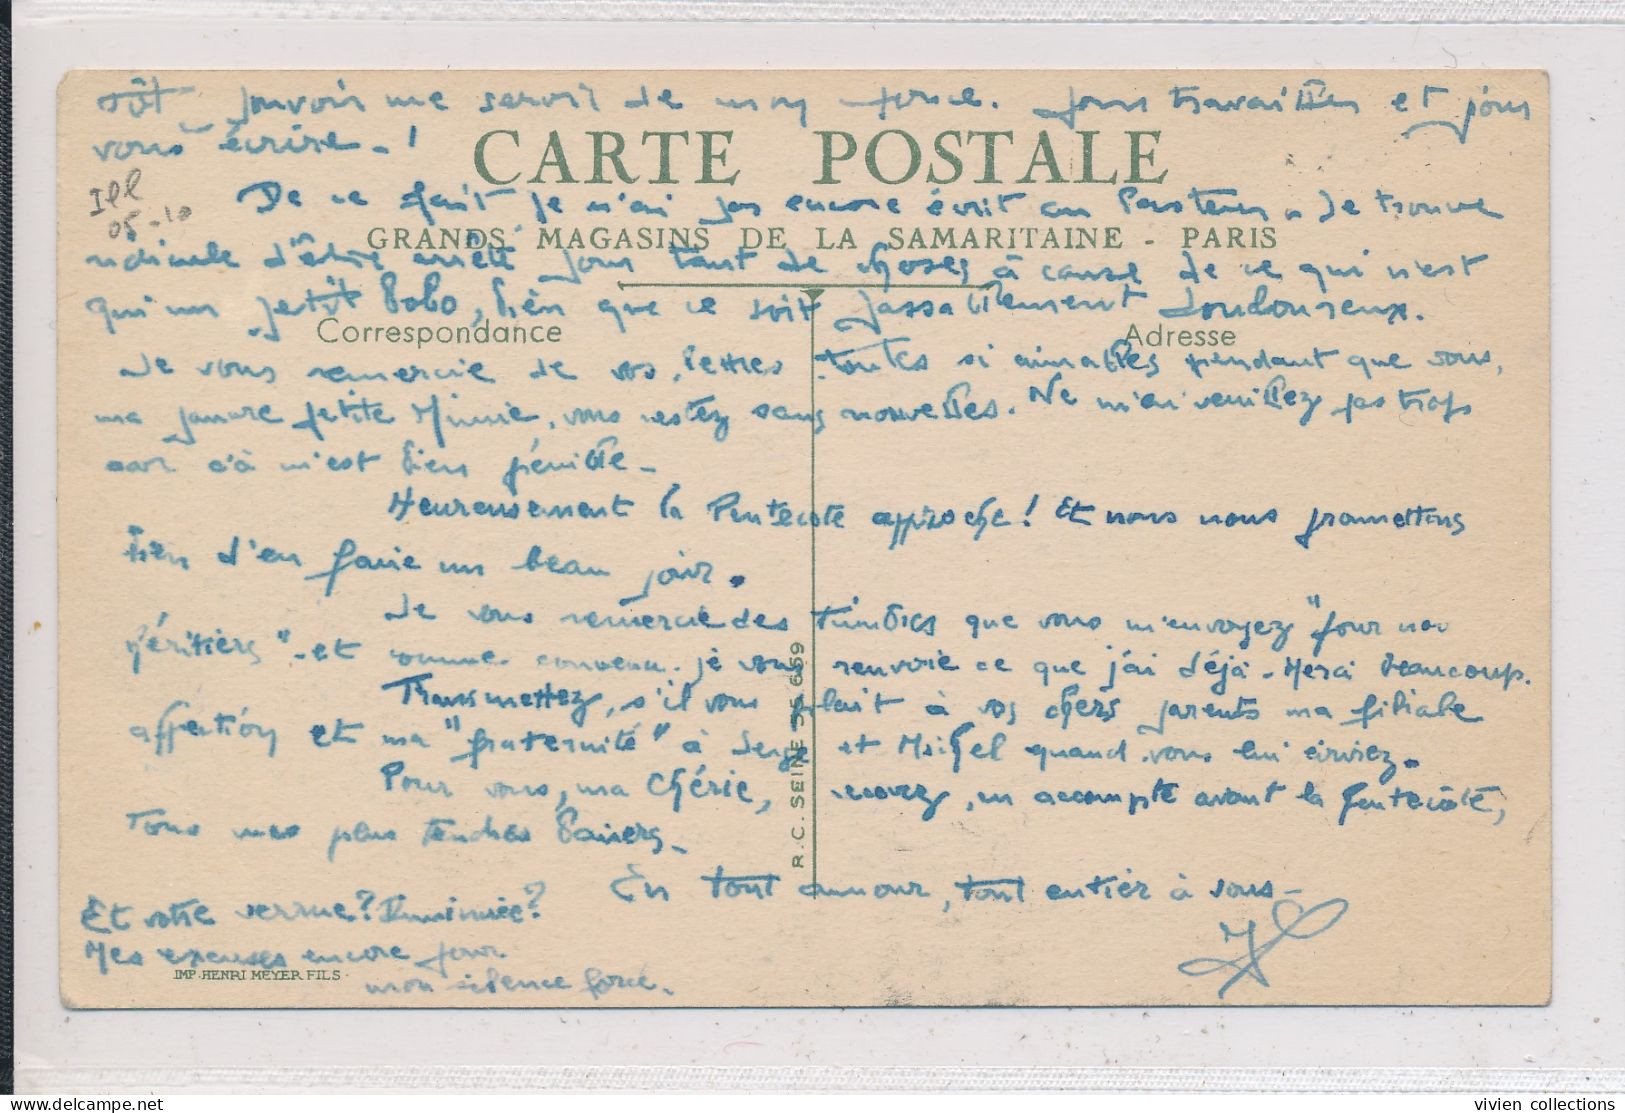 tôt pouvoir me servir de mon pouce. pour travailler et pour
vous écrire_!
CARTE POSTALE
Ill
05-10
De ce fait je n'ai pas encore écrit au Pasteur. Je trouve
GRANDS MAGASINS DE LA SAMARITAINE - PARIS
ridicule d'être arrêté pour tant de choses à cause de ce qui n'est
qu'un petit bobo, bien que ce soit passablement douloureux.
Correspondance
Adresse
Je vous remercie de vos lettres toutes si aimables pendant que vous,
ma pauvre petite Minnie, vous restez sans nouvelles. Ne m'en veuillez pas trop
car c'à m'est bien pénible_
Heureusement la Pentecôte approche! Et nous nous promettons
bien d'en faire un beau jour.
Je vous remercie des timbres que vous m'envoyez "pour nos
héritiers" et comme convenu je vous renvoie ce que j'ai déjà. Merci beaucoup.
Transmettez, s'il vous plait à vos chers parents ma filiale
affection et ma "fraternité" à Serge et Michel quand vous lui écrirez.
Pour vous, ma Chérie, recevez, en accompte avant la Pentecôte,
Tous mes plus tendres baisers_
En tout amour, tout entier à vous_
Et votre verrue? Diminuée?
Mes excuses encore pour
mon silence forcé.
IMP. HENRI MEYER FILS
R.C. SEINE 56.659
vivien collections
www.delcampe.net